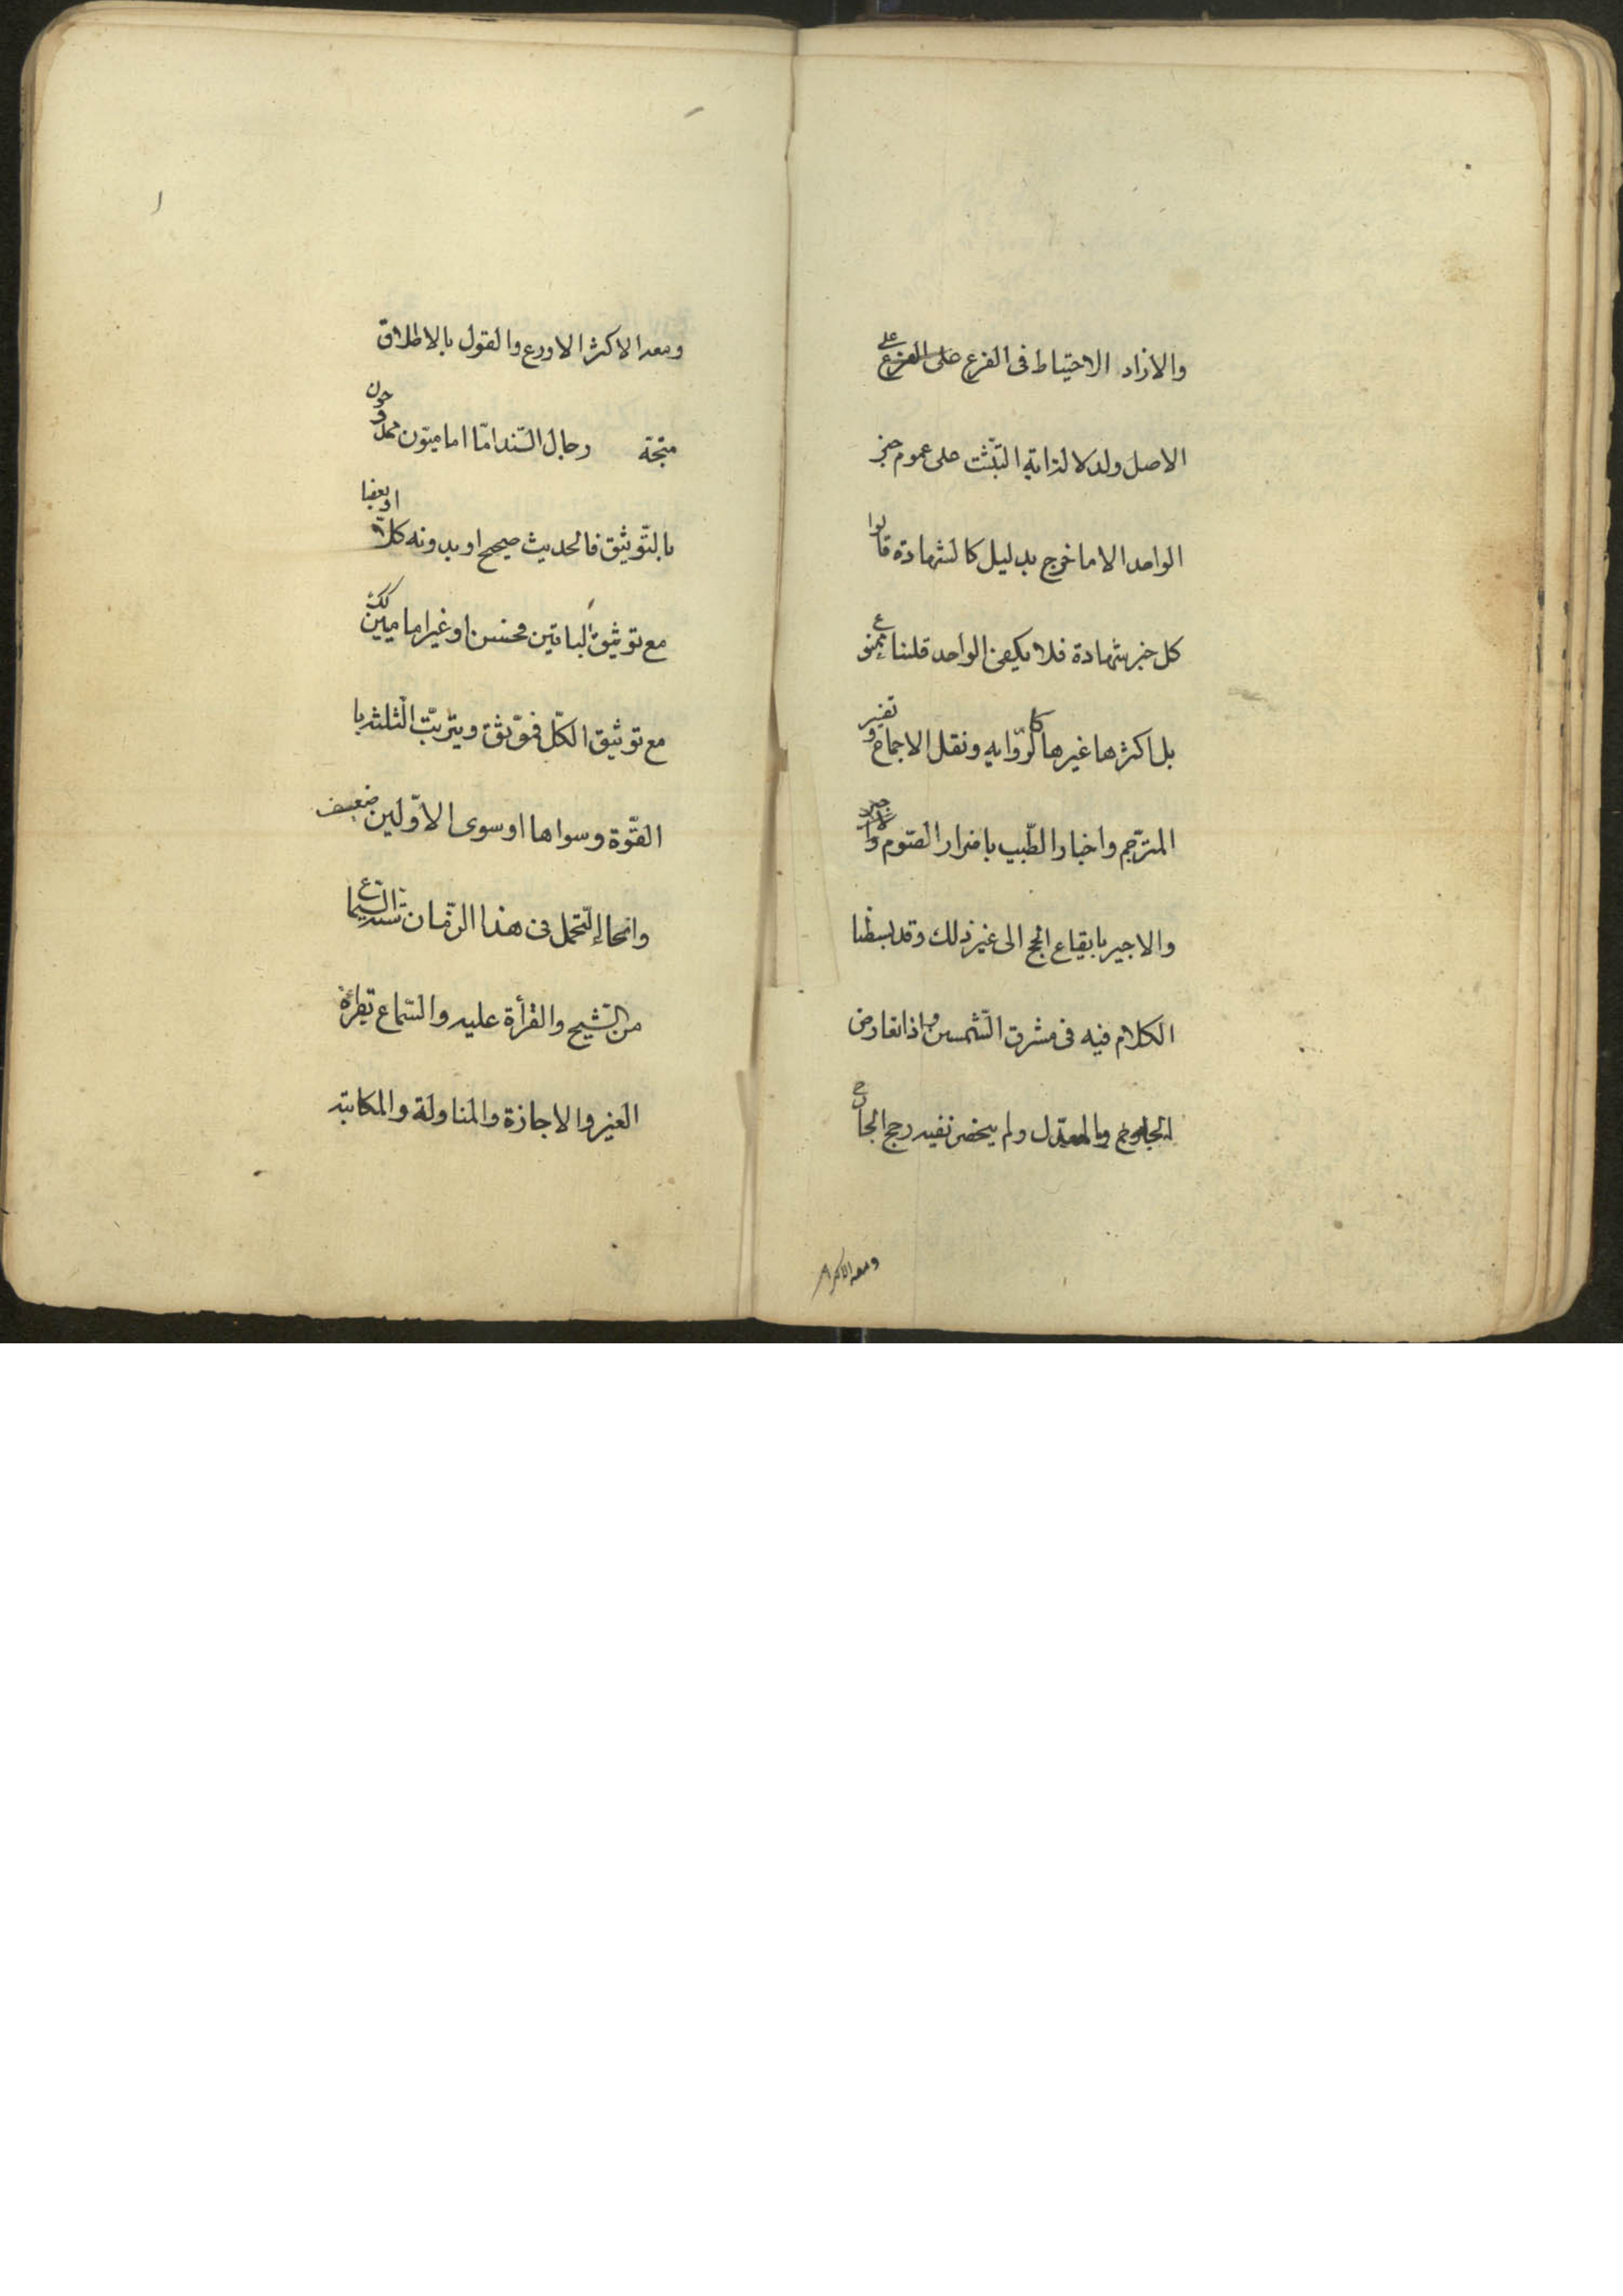 والازاد الاحتياط فى الفرع على
الاصل ولدلالة اية التثبت على عموم خبر
الواحد الا ما خرج بدليل كالشهادة قالوا
كل خبر شهادة فلا يكفى الواحد قلنا ممنوع
بل اكثرها غيرها كالرّواية ونقل الاجماع وتفسير
المترجم واخبار الطّبيب باضرار الصّوم
والاجير بايقاع الحج الى غير ذلك وقد بسطنا
الكلام فيه فى مشرق الشّمسين واذا تعارض
الجارح والمعدّل ولم يحضر نفيه رجح الجارح
ومعه الاكثر
ومعه الاكثر الاورع والقول بالاطلاق
متجّه رجال السّند امّا اماميّون ممدوحون
بالتّوثيق فالحديث صحيح او بدونه كلّا او بعضا
مع توثيق الباقين فحسن او غير اماميين
مع توثيق الكلّ فموّثق ويترتّب الثلثة با
القوّة وسواها او سوى الاوّلين ضعيف
وانحاء التّحمل فى هذا الزّمان السّماع
من الشّيخ والقرأة عليه والسّماع بقرائة
الغير والاجازة والمناولة والمكاتبة